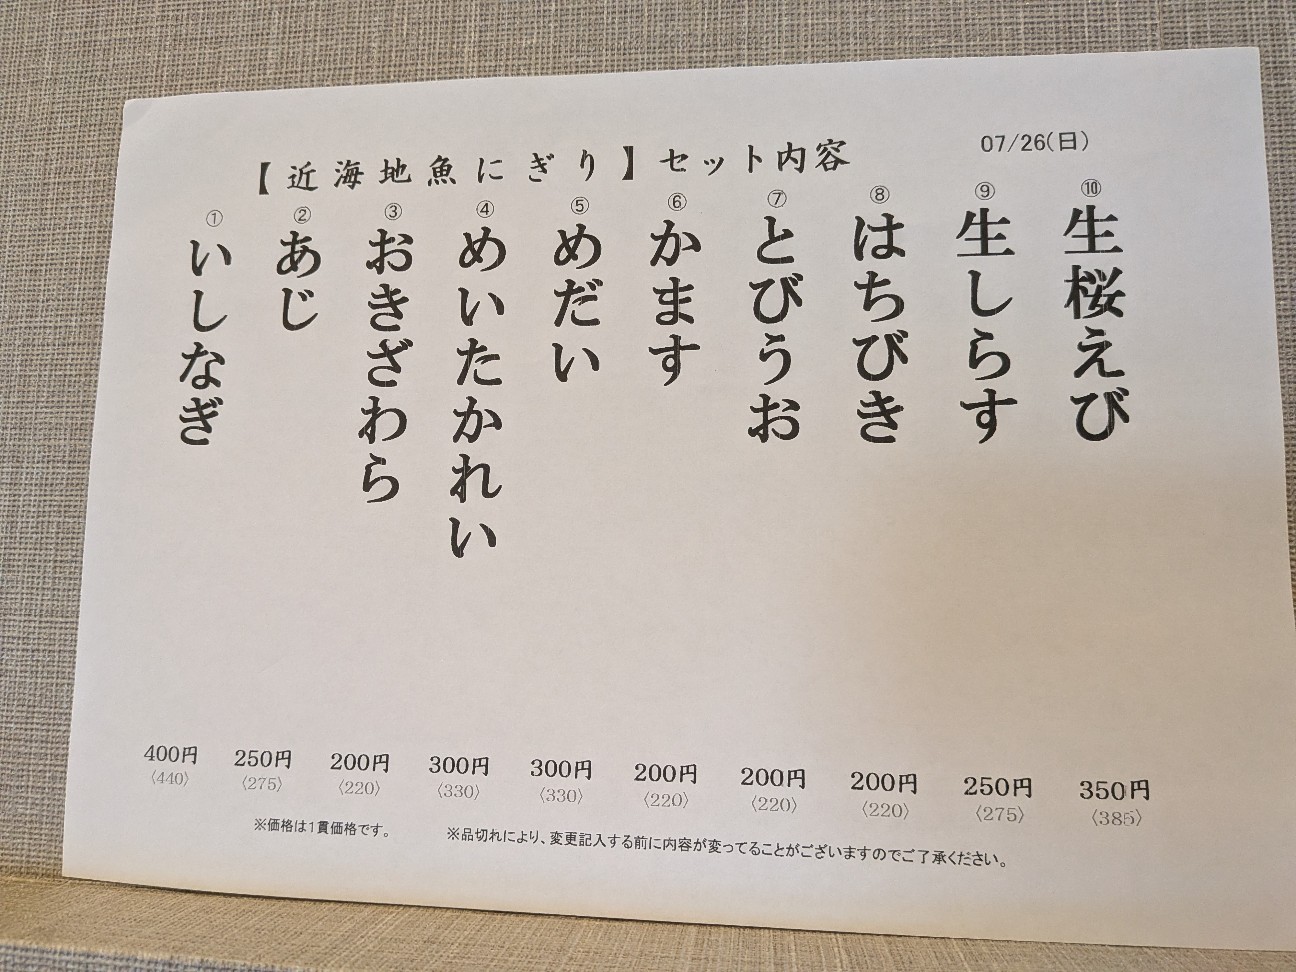 【近海地魚にぎり】セット内容
07/26(日)
①
いしなぎ
②
あじ
③
おきざわら
④
めいたかれい
⑤
めだい
⑥
かます
⑦
とびうお
⑧
はちびき
⑨
生しらす
⑩
生桜えび
400円
〈440〉
250円
〈275〉
200円
〈220〉
300円
〈330〉
300円
〈330〉
200円
〈220〉
200円
〈220〉
200円
〈220〉
250円
〈275〉
350円
〈385〉
※価格は1貫価格です。
※品切れにより、変更記入する前に内容が変ってることがございますのでご了承ください。